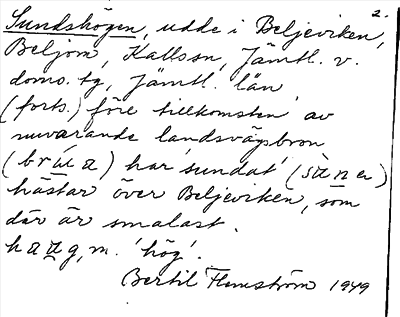 2.
Sundshögen, udde i Beljeviken,
Beljom, Kallssn, Jämtl. v.
doms. tg, Jämtl. län
(forts.) före tillkomsten av
nuvarande landsvägsbron
(brúa) har 'sundat' (sànen)
hästar över Beljeviken, som
där är smalast.
haag, m. 'hög'.
Bertil Flemström 1949